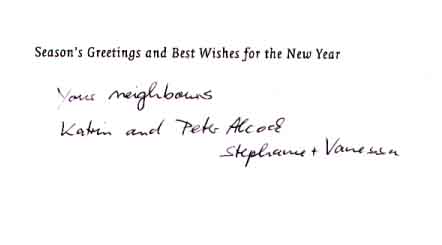 Season's Greetings and Best Wishes for the New Year
Your neighbours
Katrin and Peter Alcock
Stephanie + Vanessa